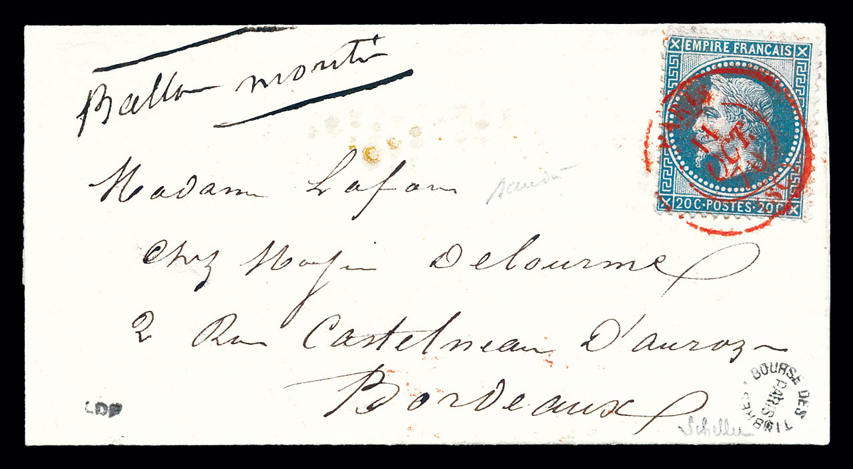 Ballon monté
EMPIRE FRANÇAIS
20 C · POSTES · 20 C
PARIS
11
OCT.
70
Madame Lafon
Chez Delourme
2 Rue Castelneau D'auroz
Bordeaux
BOURSE DES TIMBRES
PARIS
LDP
Scheller